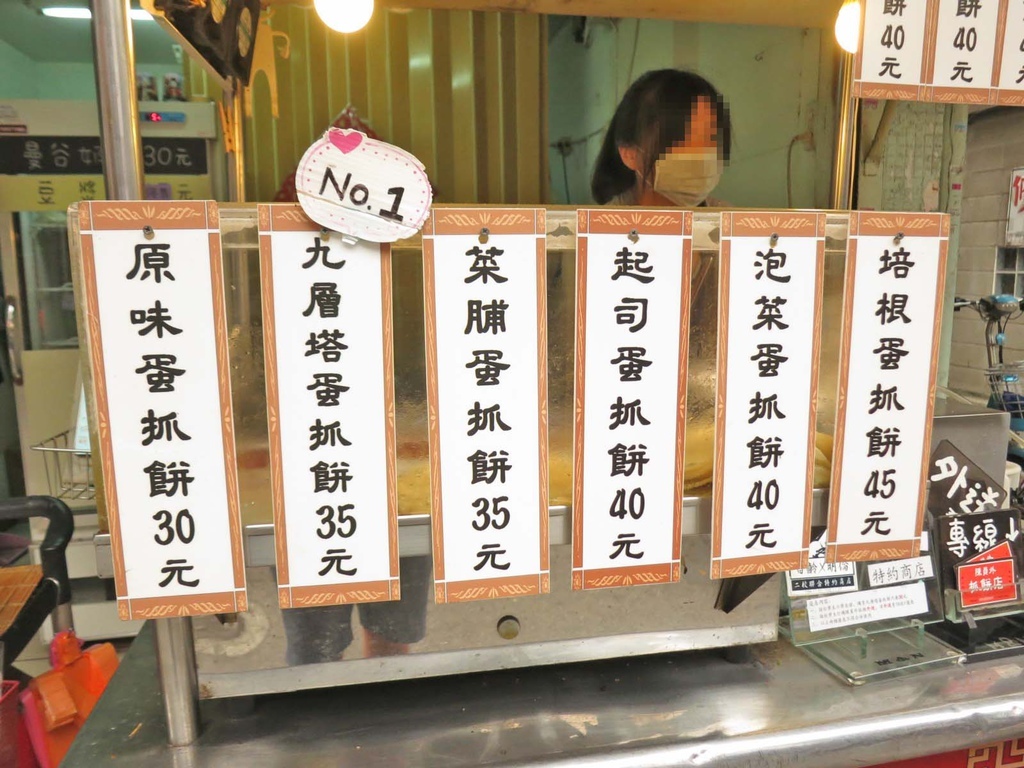 曼谷
30元
餅40元
餅40元
No.1
原味蛋抓餅30元
九層塔蛋抓餅35元
菜脯蛋抓餅35元
起司蛋抓餅40元
泡菜蛋抓餅40元
培根蛋抓餅45元
外送
專線↓
抓餅店
特約商店
二校聯合特約商店